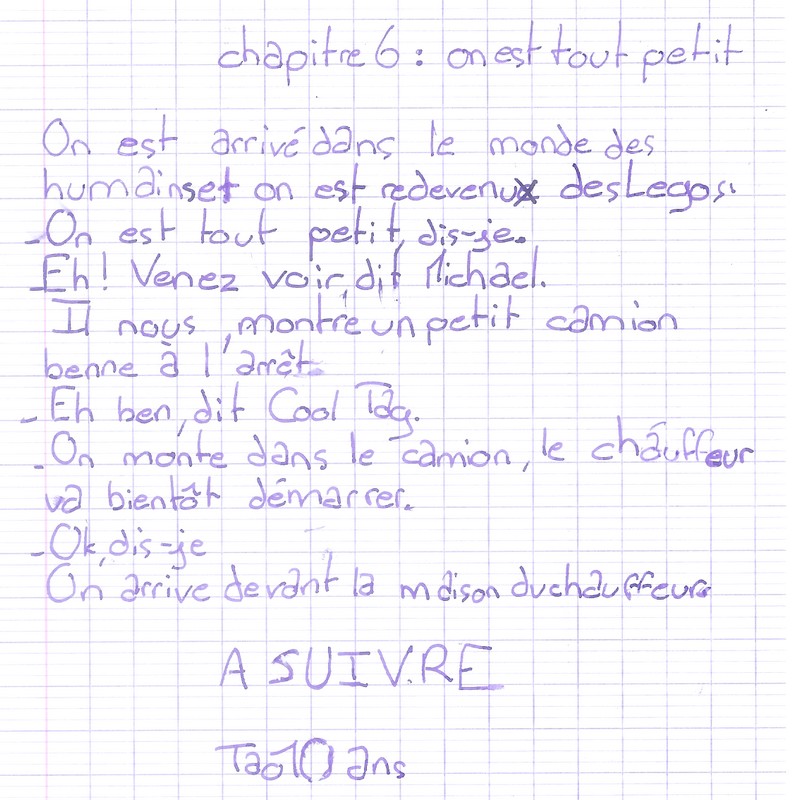 chapitre 6 : on est tout petit
On est arrivé dans le monde des
humains et on est redevenux des Legos.
-On est tout petit, dis-je.
-Eh! Venez voir, dit Michael.
Il nous, montre un petit camion
benne à l'arrêt.
-Eh ben, dit Cool Tag.
-On monte dans le camion, le chauffeur
va bientôt démarrer.
-Ok, dis-je
On arrive devant la maison du chauffeur.
A SUIV.RE
Tao 10 ans